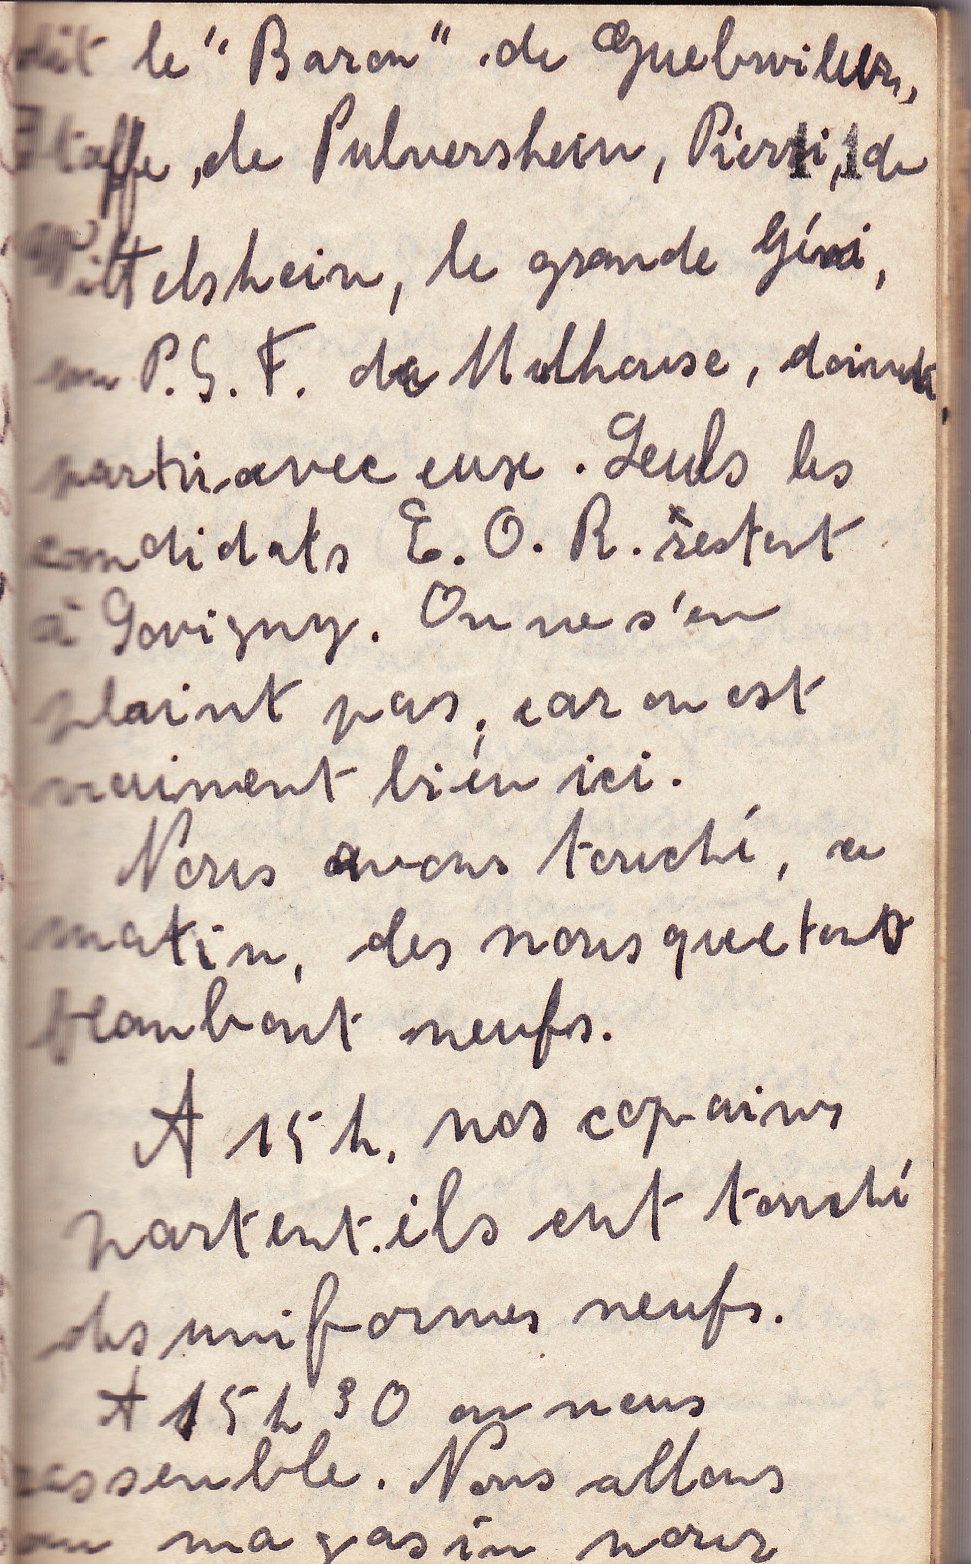 dit le "Baron" de Guebwiller,
Staffe, de Pulversheim, Pierri, de
Wittelsheim, le grande Géni,
un P.S.F. de Mulhouse, doivent
partir avec eux. Seuls les
candidats E.O.R. restent
à Govigny. On ne s'en
plaint pas, car on est
vraiment bien ici.
Nous avons touché, ce
matin, des mousquetons
flambant neufs.
A 15 h, nos copains
partent. ils ont touché
des uniformes neufs.
A 15 h 30 on nous
rassemble. Nous allons
au magasin pour